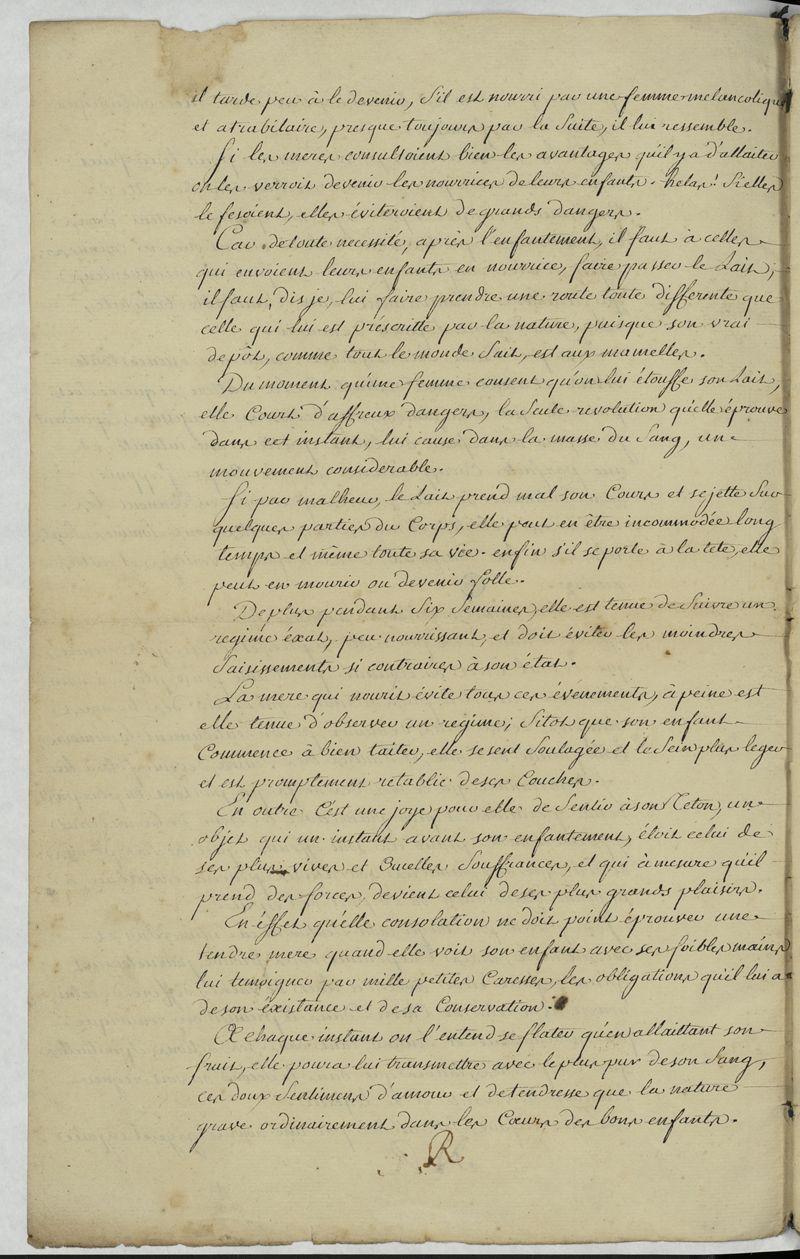 il tarde peu à le devenir, s'il est nourri par une femme melancolique
et atrabilaire, presque toujours par la suite, il lui ressemble.
Si les meres consultoient bien les avantages qu'il y a d'allaiter
on les verroit devenir les nourrices de leurs enfants. helas! si elles
le fesoient, elles éviteroient de grands dangers.
Car de toute necessité, après l'enfantement, il faut à celles
qui envoient leurs enfants en nourrice, faire passer le Lait;
il faut, dis je, lui faire prendre une route toute differente que
celle qui lui est préscritte par la nature, puisque son vrai
depôt, comme tout le monde sait, est aux mamelles.
Du moment qu'une femme consent qu'on lui étouffe son Lait,
elle Court d'affreux dangers, la seule revolution qu'elle éprouve
dans cet instant, lui cause dans la masse du Sang, un
mouvement considerable.
Si par malheur, le Lait prend mal son Cours et se jette sur
quelques parties du Corps, elle peut en être incommodée long
temps et même toute sa vie. enfin s'il se porte à la tete, elle
peut en mourir ou devenir folle.
De plus pendant six semaines, elle est tenue de suivre un
regime éxat, peu nourrissant, et doit éviter les moindres
saisissements si contraires à son état.
La mere qui nourit évite tous ces événements, à peine est
elle tenue d'observer un regime; sitot que son enfant
Commence à bien taiter, elle se sent soulagée et le Sein plus leger
et est promptement retablie de ses Couches.
En outre c'est une joye pour elle de sentir à son Teton, un
objet qui un instant avant son enfantement, étoit celui de
ses plus vives et cruelles souffrances, et qui à mesure qu'il
prend des forces, devient celui de ses plus grands plaisirs.
En éffet qu'elle consolation ne doit point éprouver une
tendre mere quand elle voit son enfant avec ses foibles mains
lui temoigner par mille petites Caresses, les obligations qu'il lui a
de son éxistance et de sa Conservation.
A chaque instant on l'entend se flater qu'en allaittant son
fruit, elle poura lui transmettre avec le plus pur de son Sang,
ces doux sentimens d'amour et de tendresse que la nature
grave ordinairement dans les Cœurs des bons enfants.
R